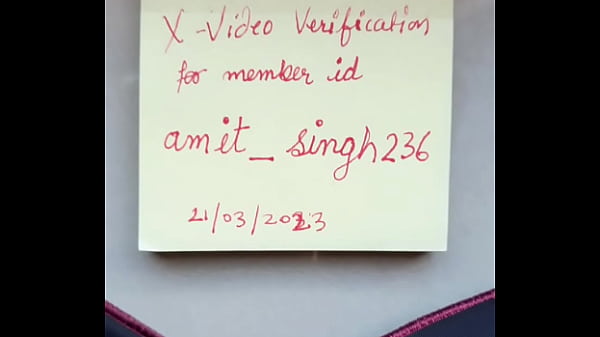 X-Video Verification
for member id
amit_singh236
21/03/2023